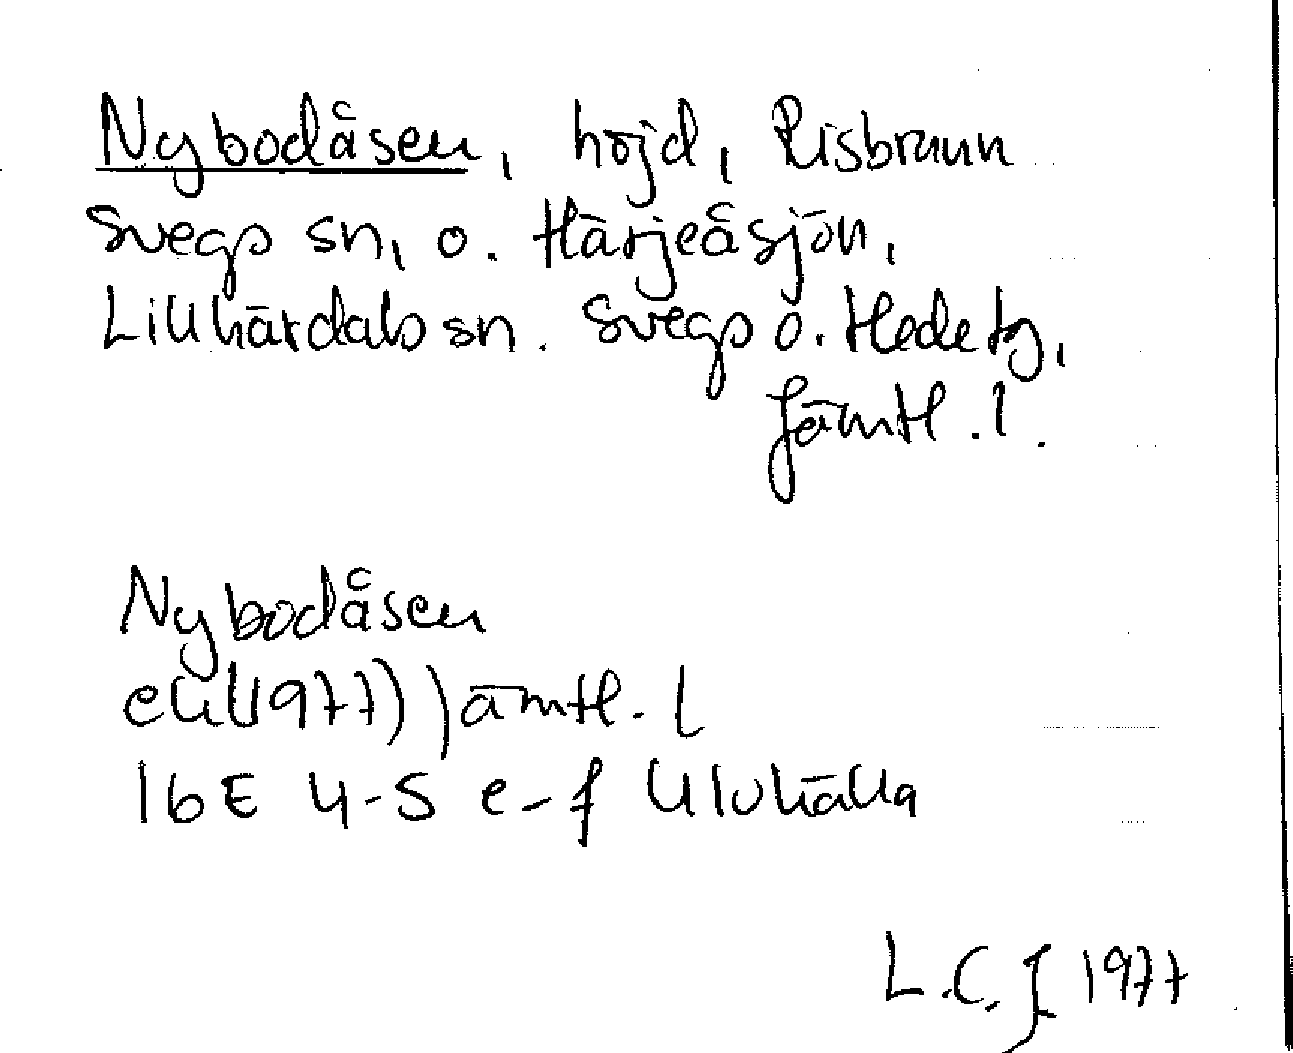 Nybodåsen, höjd, Risbrunn
Svegs sn, o. Härjeåsjön,
Lillhärdals sn. Svegs o. Hede tg,
Jämtl. l.
Nybodåsen
ek(1977) Jämtl. l
16E 4-5 e-f Ulvkälla
L.C.J. 1977